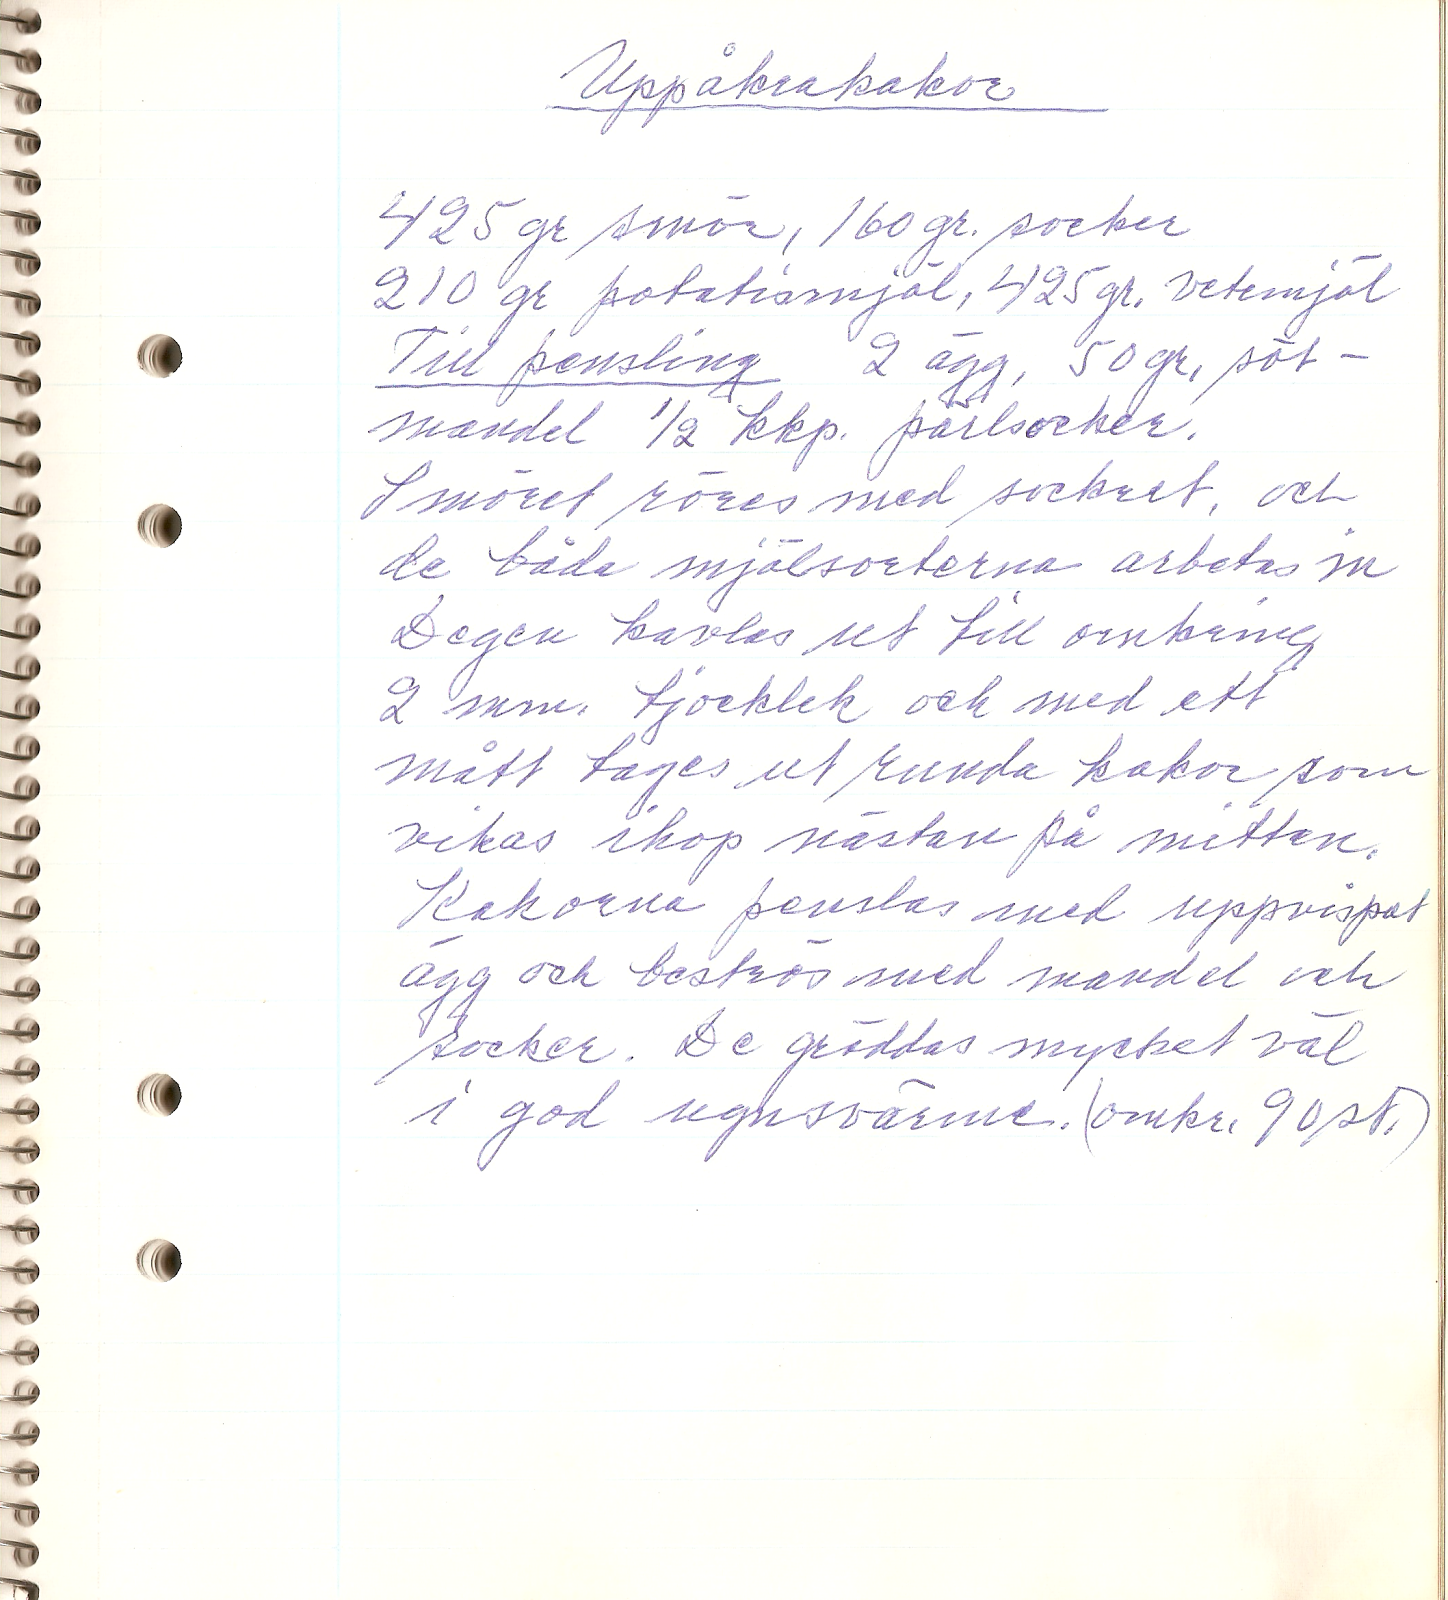 Uppåkrakakor
425 gr smör, 160 gr. socker
210 gr potatismjöl, 425 gr. vetemjöl
Till pensling 2 ägg, 50 gr, söt-
mandel 1/2 kkp. pärlsocker.
Smöret röres med sockret, och
de båda mjölsorterna arbetas in
Degen kavlas ut till omkring
2 mm. tjocklek och med ett
mått tages ut runda kakor som
vikas ihop nästan på mitten.
Kakorna penslas med uppvispat
ägg och beströs med mandel och
socker. De gräddas mycket väl
i god ugnsvärme. (omkr. 90 st.)